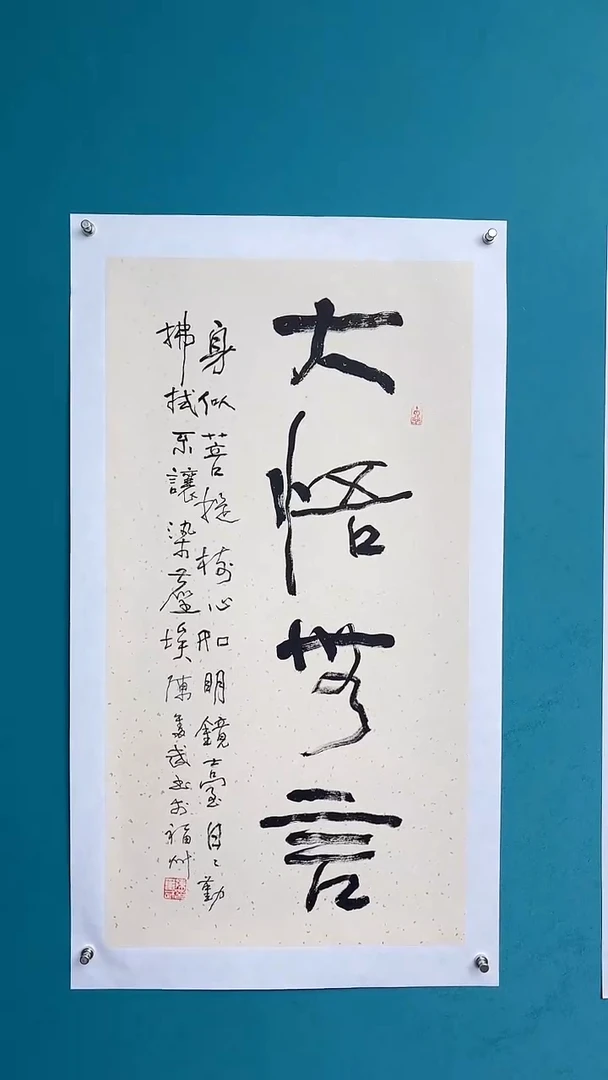 大悟無言
身似菩提樹心如明鏡臺勤
拂拭不讓染塵埃陳武書於福州